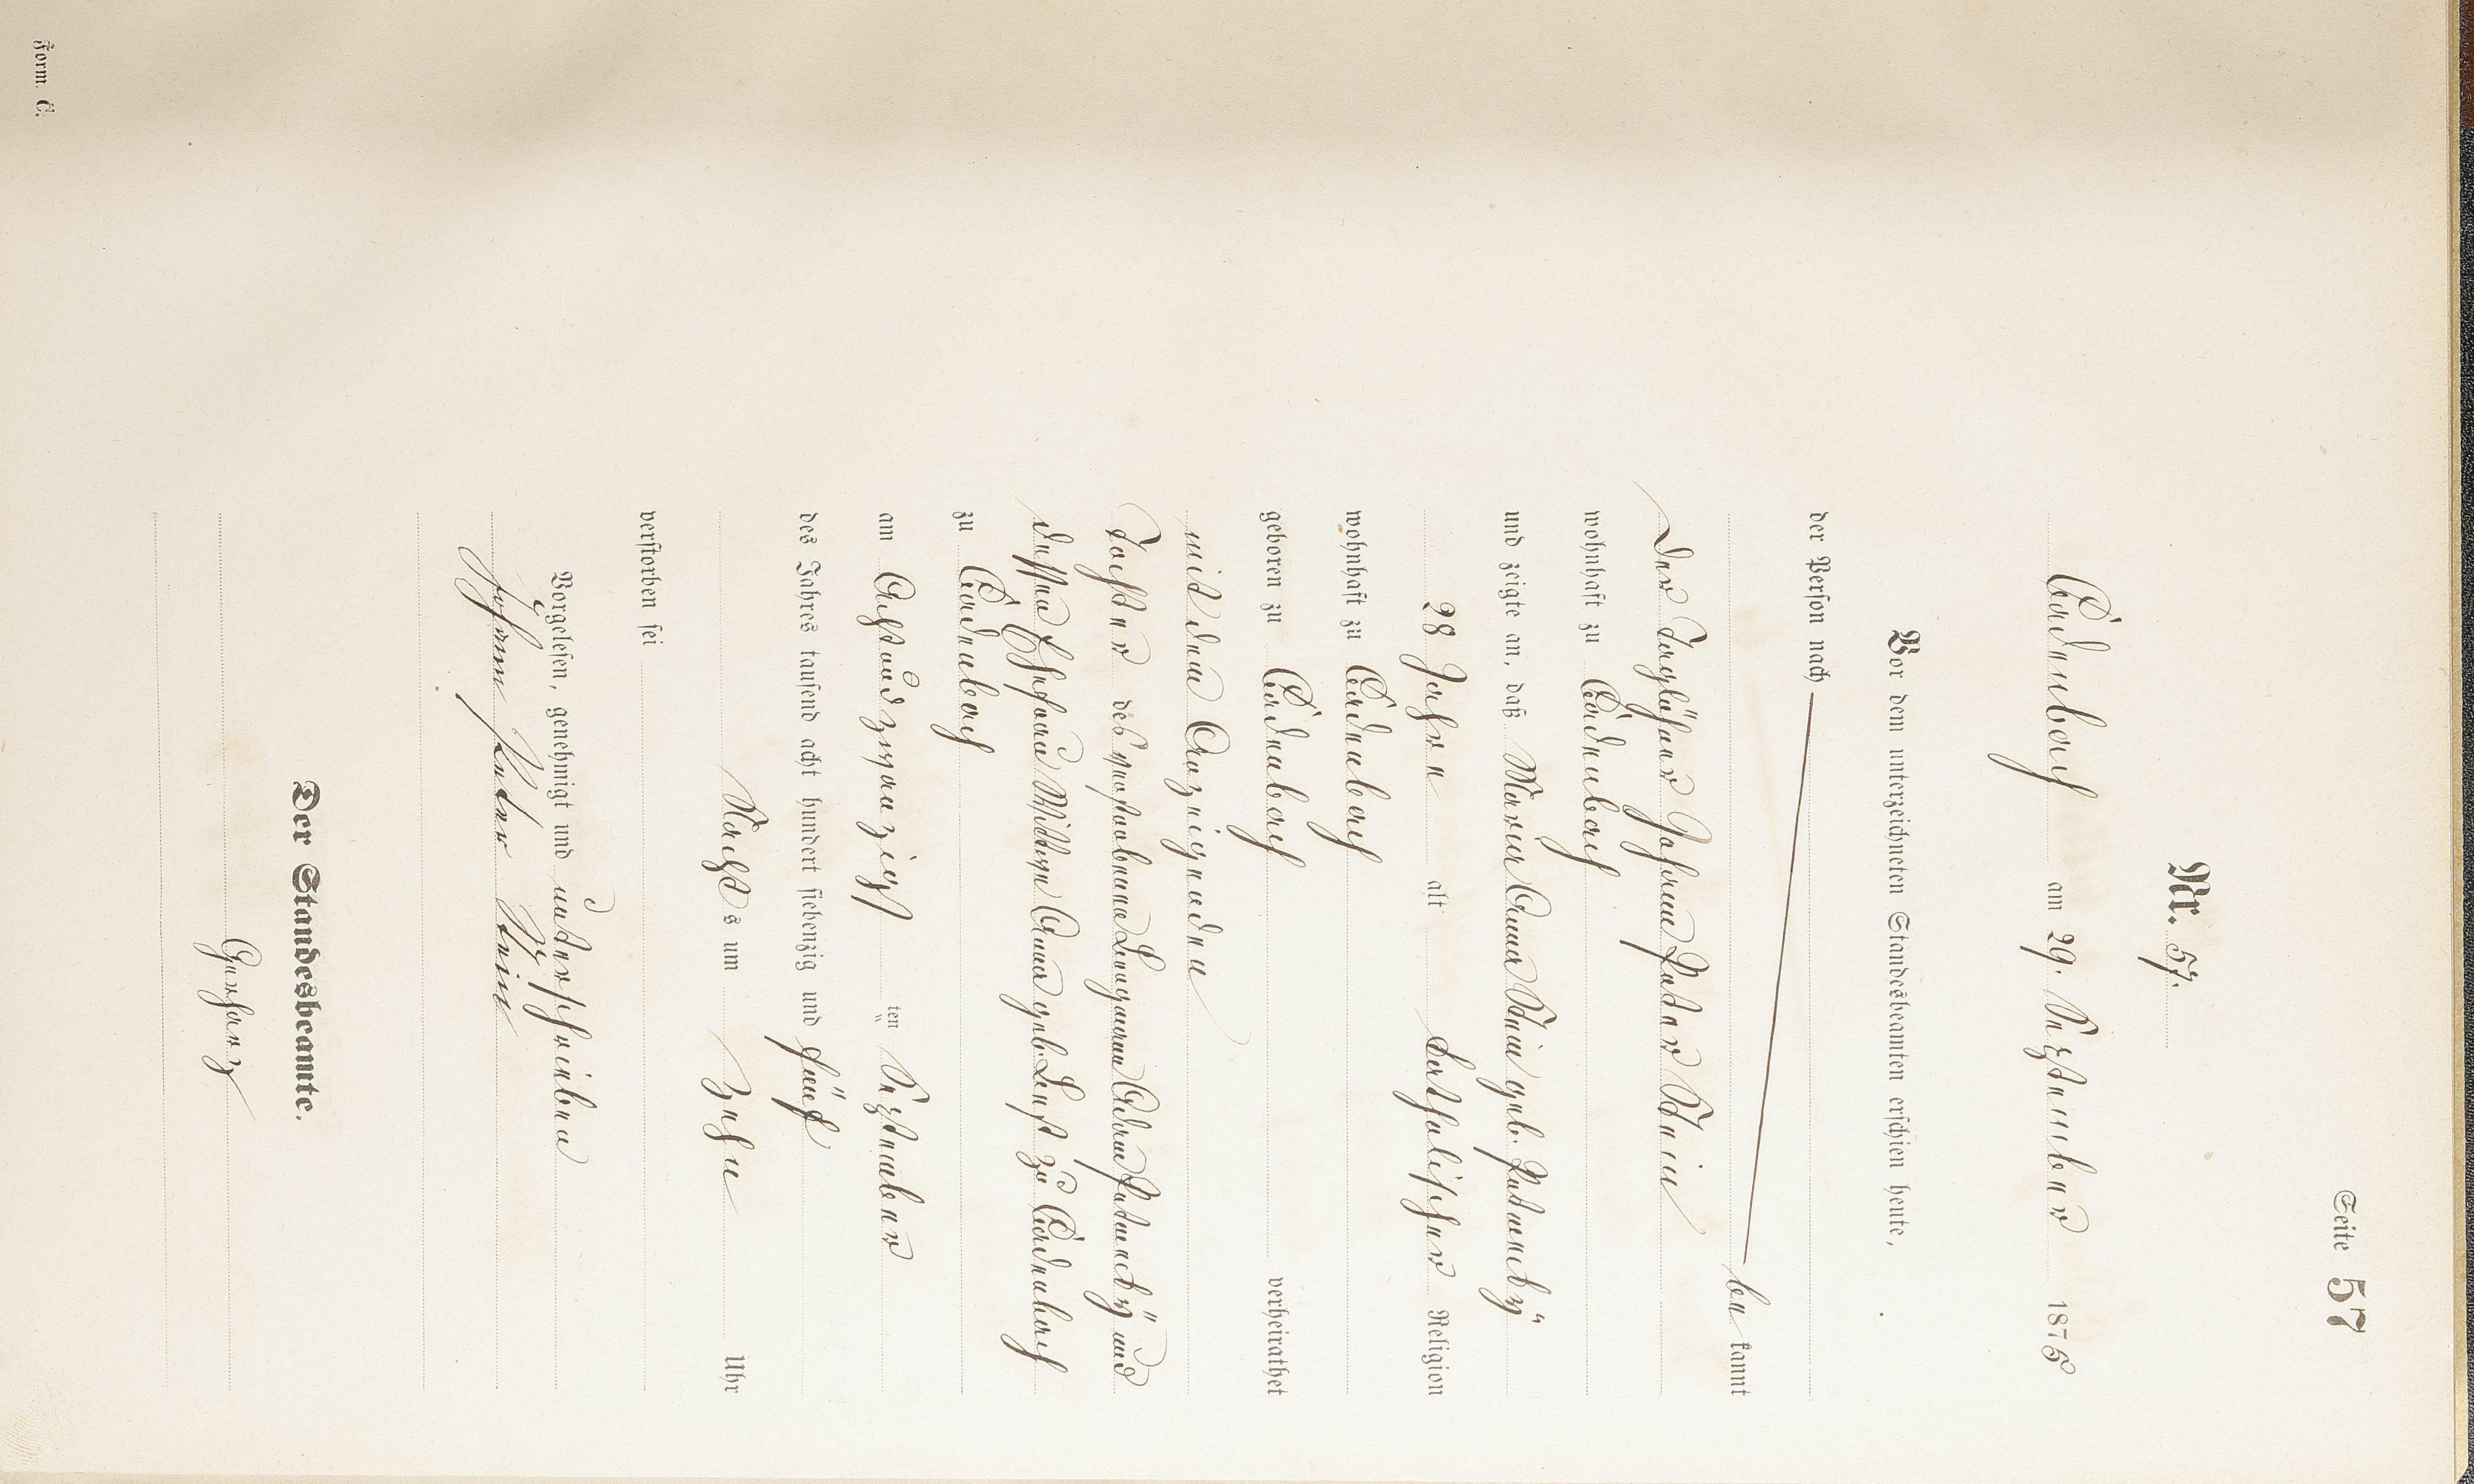 Seite 57
Nr. 57.
Cadenbach am 29. September 1875
Vor dem unterzeichneten Standesbeamten erschien heute,
der Person nach
be kannt
der Taglöhner Johann Peter Stein
wohnhaft zu Cadenbach
und zeigte an, daß Maria Anna Stein geb.
28 Jahre alt katholischer Religion
wohnhaft zu Cadenbach
geboren zu Cadenbach verheirathet
mit dem Anzeigenden
Tochter des verstorbenen Adam und
dessen Ehefrau Wittwe Anna geb. zu Cadenbach
zu Cadenbach
am Achtundzwanzigsten September
des Jahres tausend acht hundert siebenzig und fünf
Nachts um zehn Uhr
verstorben sei
Vorgelesen, genehmigt und unterschrieben
Johann Peter Stein
Der Standesbeamte.
Gerharz
Form. C.